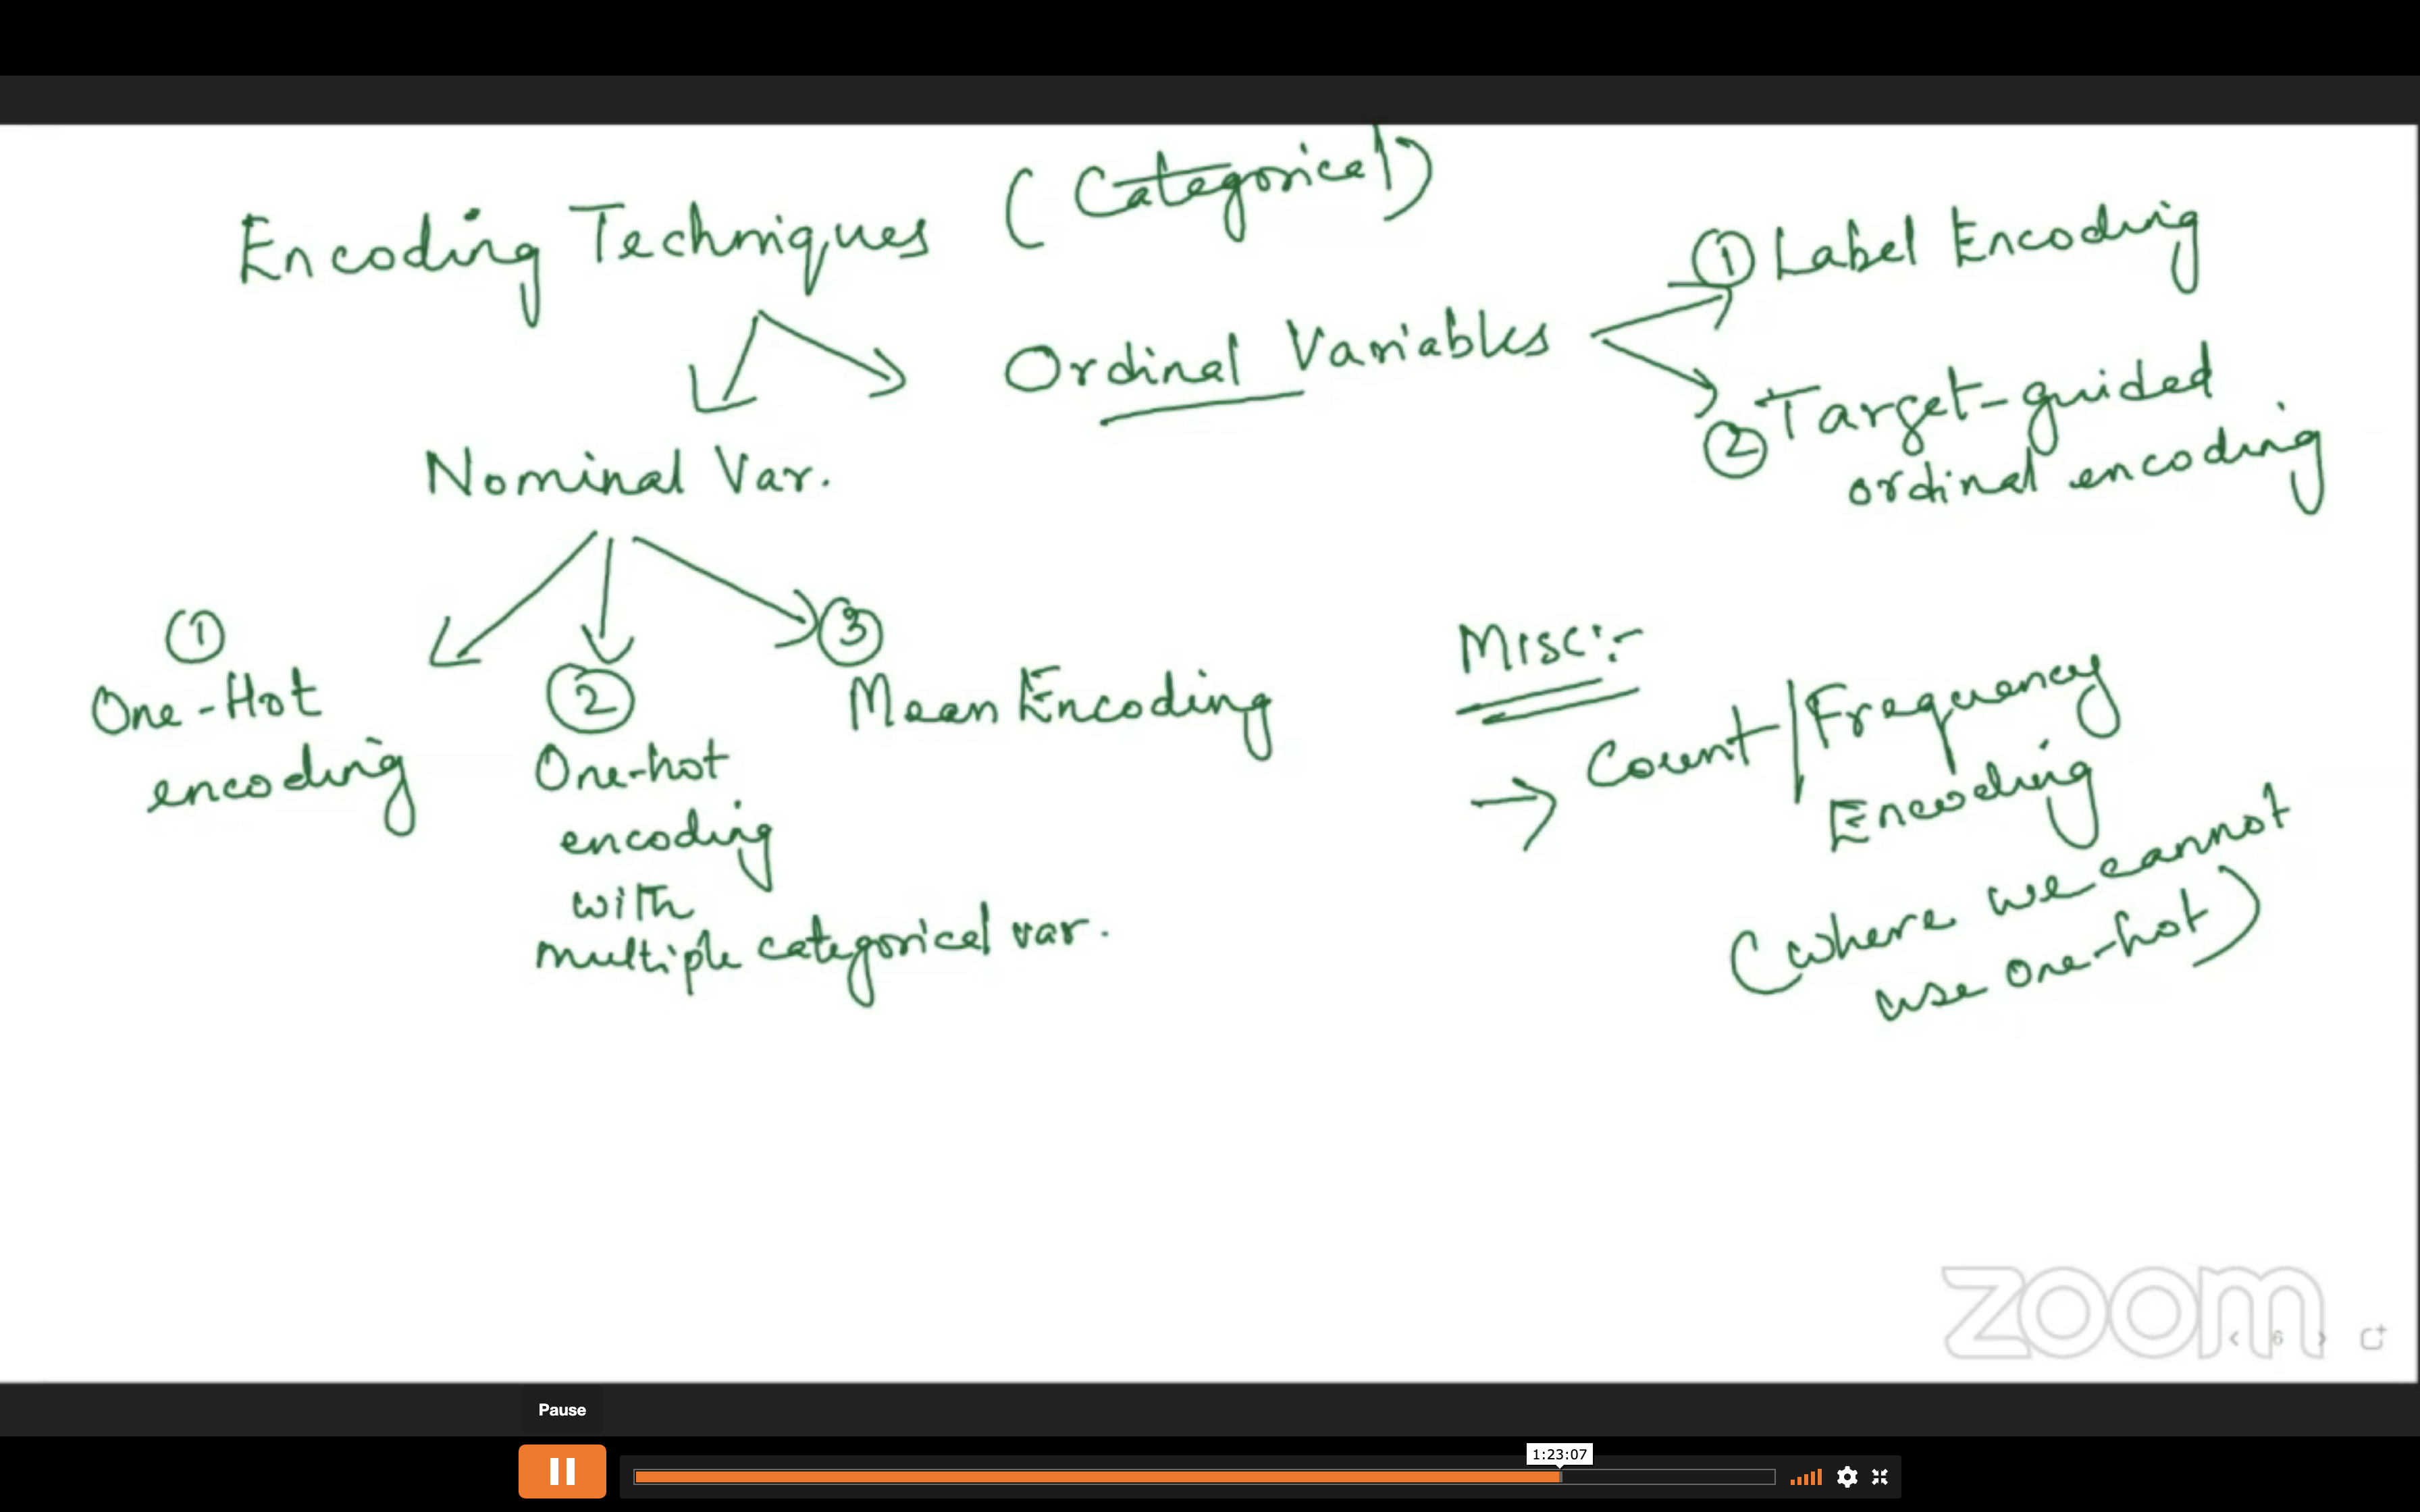 Encoding Techniques (Categorical)
Ordinal Variables
① Label Encoding
② Target-guided
ordinal encoding
Nominal Var.
①
One-Hot
encoding
②
One-hot
encoding
with
multiple categorical var.
③
Mean Encoding
Misc:-
→ Count/Frequency
Encoding
(where we cannot
use one-hot)
zoom
6
Pause
1:23:07